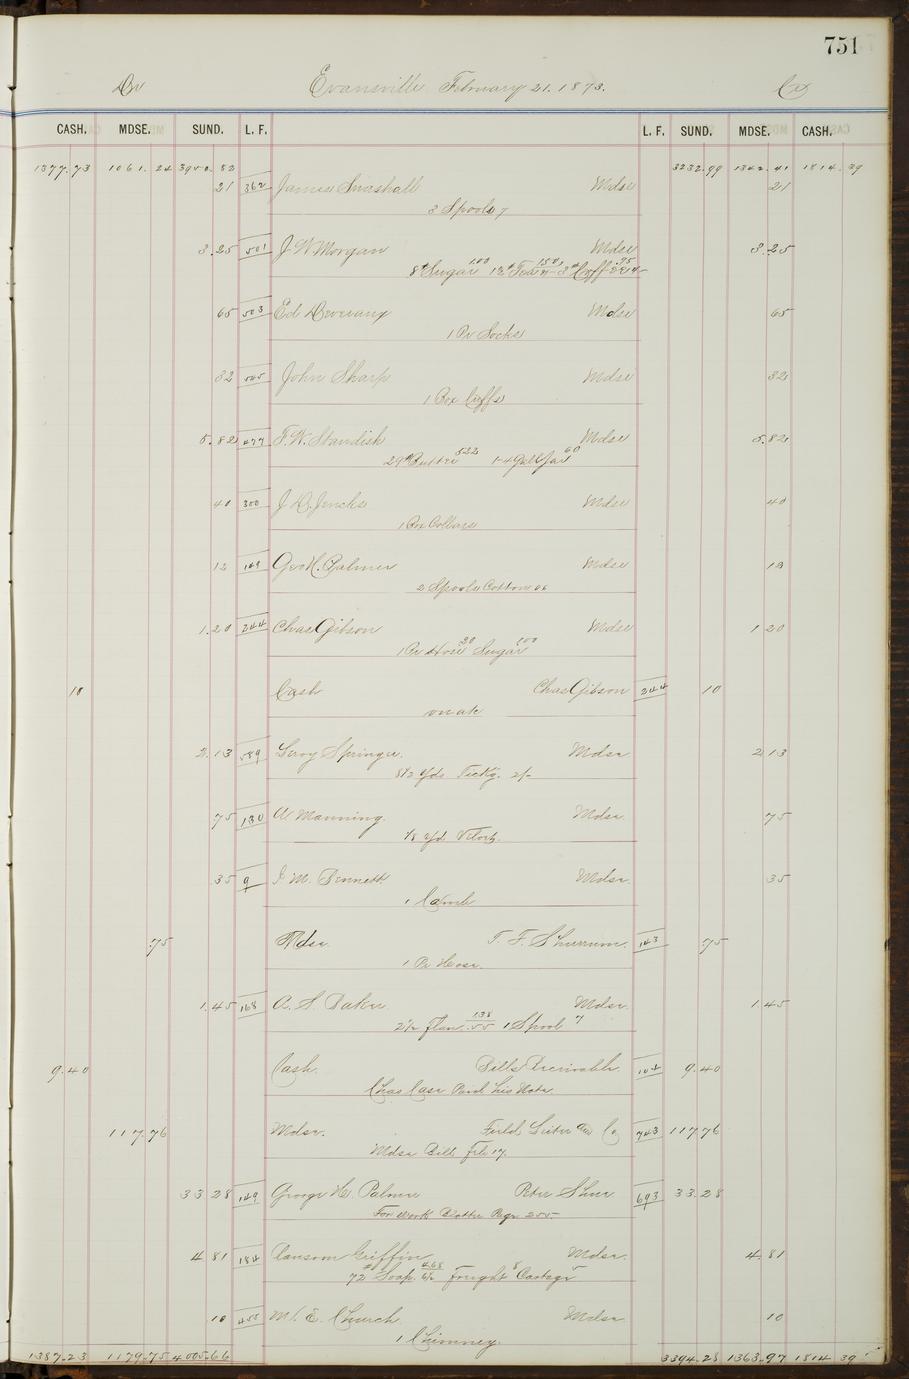 751
Dr Evansville February 21. 1873. Cr
CASH. MDSE. SUND. L. F. L. F. SUND. MDSE. CASH.
1377.73 1061.24 3950.82 3232.99 1342.41 1814.39
21 362 James Marshall Mdse 21
3 Spools 7
3.25 501 J W Morgan Mdse 3.25
8# Sugar 1.00
65 503 Ed Mdse 65
1 Pr Socks
32 505 John Sharp Mdse 32
1 Box Cuffs
5.82 477 F. W. Standish Mdse 5.82
29# Butter 522 1-4 Gall Jar 60
40 300 J D. Jencks Mdse 40
1 Box Collars
12 149 Geo H. Palmer Mdse 12
2 Spools Cotton 06
1.20 244 Chas Gibson Mdse 1 20
1 Pr Hose 20 Sugar 100
10 Cash Chas Gibson 244 10
on a/c
2.13 589 Leroy Springer. Mdse 2 13
8 1/2 yds Tickg. 2/-
75 130 W Manning. Mdse 75
1/8 yd
35 9 M. Bennett. Mdse. 35
1 Comb
.75 Mdse. T. F. Shurrum. 143 .75
1 Pr Hose.
1.45 168 A. S. Baker Mdse. 1.45
2 1/2 Flan 138 .55 1 Spool 7
9.40 Cash. Bills Receivable. 104 9.40
Chas Case Paid his Note.
117.76 Mdse. Field Leiter & Co 743 117.76
Mdse Bill Feb 17.
33 28 149 George H. Palmer Peter 693 33.28
For Work 255.
4 81 184 Ransom Griffin Mdse. 4.81
72# Soap. 468 6 1/2 Freight 8 Cartage 5
10 455 M. E. Church. Mdse 10
1 Chimney
1387.23 1179.75 4005.66 3394.28 1363.97 1814 39